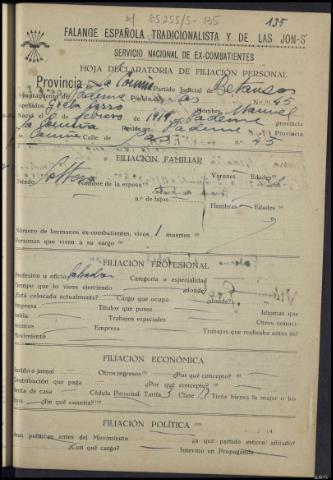 65255/5-135
135
FALANGE ESPAÑOLA TRADICIONALISTA Y DE LAS JON-S
SERVICIO NACIONAL DE EX-COMBATIENTES
HOJA DECLARATORIA DE FILIACIÓN PERSONAL
Provincia La Coruña Partido Judicial Betanzos
Ayuntamiento de Paderne Núm. 45
Apellidos Nombre Manuel
Nació el de febrero de 1919 en Paderne provincia
La Coruña Reside en Paderne Provincia
Coruña Calle de n.º 45
FILIACIÓN FAMILIAR
Estado Soltero Nombre de la esposa Varones Edades
n.º de hijos
Hembras Edades
Número de hermanos ex-combatientes, vivos 1 muertos
Personas que viven a su cargo
FILIACIÓN PROFESIONAL
Profesión u oficio Labrador Categoría o especialidad
Tiempo que lo viene ejerciendo ¿dónde?
Está colocado actualmente? Cargo que ocupa ¿dónde?
Empresa Títulos que posee Idiomas que
habla Trabajos especiales Otros conoci-
mientos Empresa Trabajos que realizaba antes del
Movimiento
FILIACIÓN ECONÓMICA
Sueldo o jornal Otros ingresos ¿Por qué concepto?
Contribución que paga ¿Por qué concepto?
Renta de casa Cédula Personal Tarifa 3 Clase 13 Tiene bienes la mujer o los
hijos ¿En qué cuantía?
FILIACIÓN POLÍTICA
Ideas políticas antes del Movimiento ¿a qué partido estuvo afiliado?
¿Con qué cargo? Intervino en Propaganda